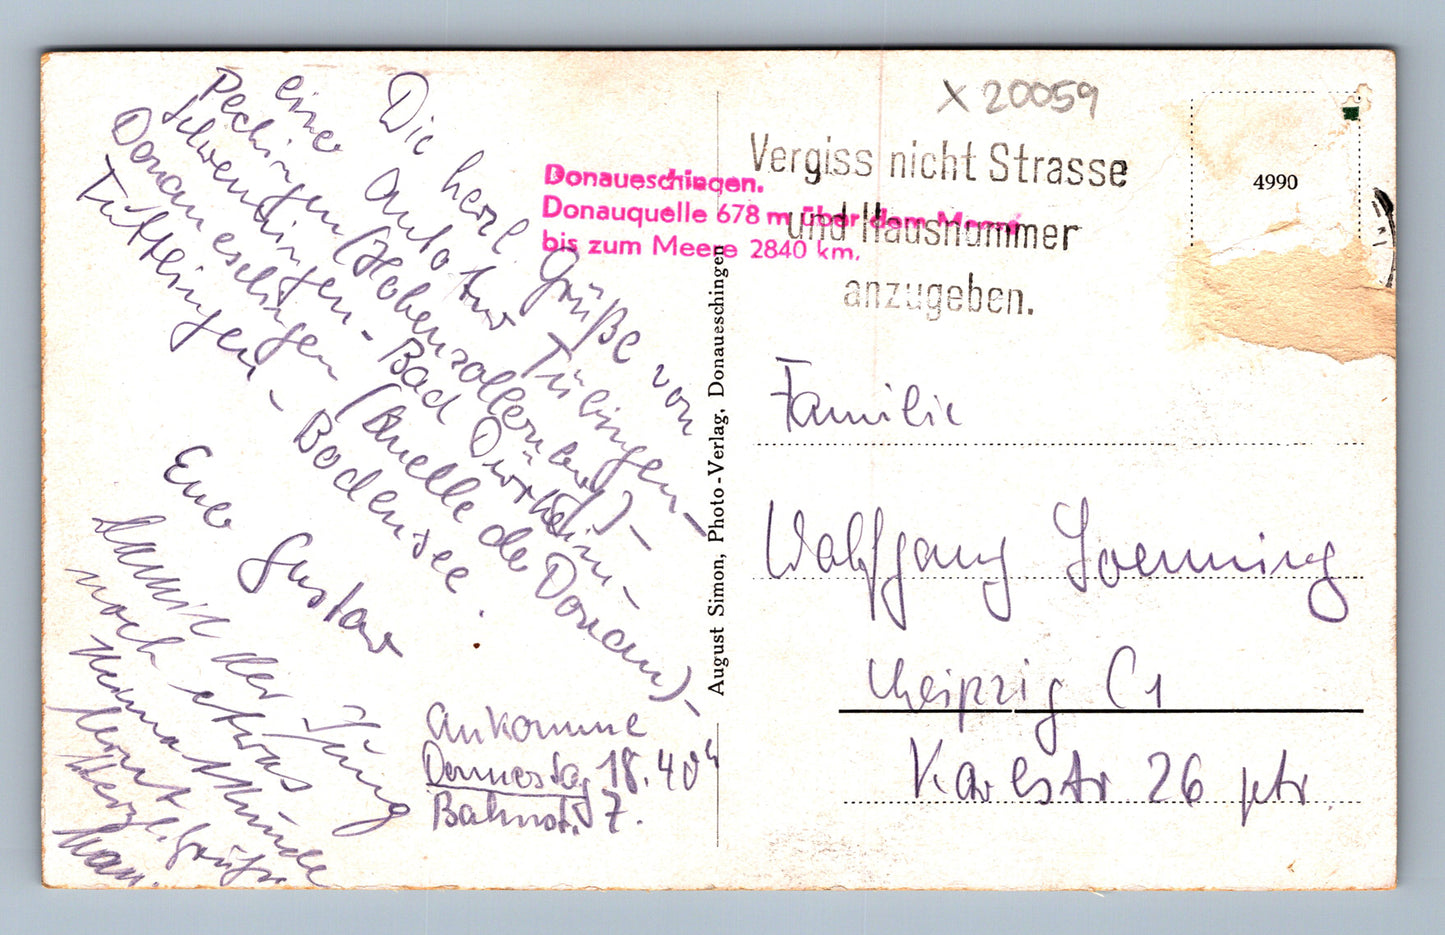 X 20059
Vergiss nicht Strasse
und Hausnummer
anzugeben.
4990
Donaueschingen.
Donauquelle 678 m über dem Meere
bis zum Meere 2840 km.
August Simon, Photo-Verlag, Donaueschingen
Die herzl. Grüße von
einer Autotour Tübingen-
Hechingen (Hohenzollernburg)-
Schwenningen - Bad Dürrheim -
Donaueschingen (Quelle der Donau) -
Tuttlingen - Bodensee.
Euer Gustav
Damit der Jung
noch etwas
Heimatkunde
lernt
Herzl. Grüße
Ankomme
Donnerstag 18.40h
Bahnst. 7.
Familie
Wolfgang Loenning
Leipzig C1
Karlstr 26 ptr.